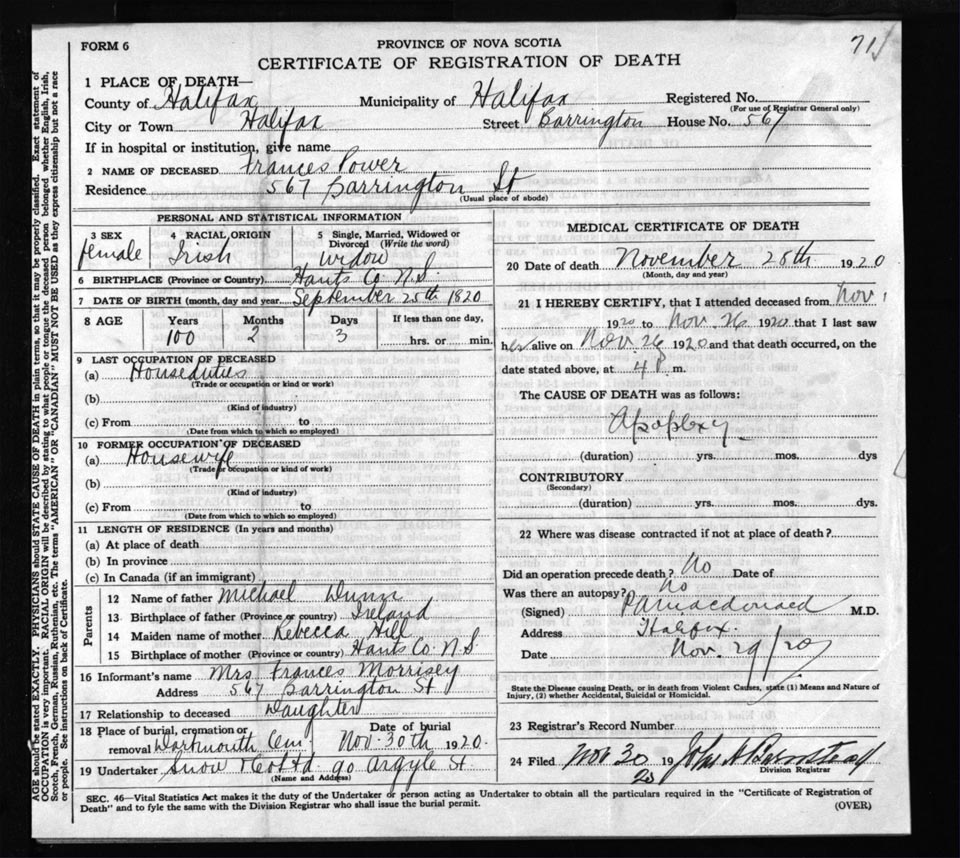 FORM 6
PROVINCE OF NOVA SCOTIA
CERTIFICATE OF REGISTRATION OF DEATH
71
1 PLACE OF DEATH—
County of Halifax Municipality of Halifax Registered No.
(For use of Registrar General only)
City or Town Halifax Street Barrington House No. 567
If in hospital or institution, give name
2 NAME OF DECEASED Frances Power
Residence 567 Barrington St
(Usual place of abode)
PERSONAL AND STATISTICAL INFORMATION
3 SEX female
4 RACIAL ORIGIN Irish
5 Single, Married, Widowed or Divorced (Write the word) widow
6 BIRTHPLACE (Province or Country) Hants Co. N.S.
7 DATE OF BIRTH (month, day and year) September 25th 1820
8 AGE Years Months Days If less than one day,
100 2 3 hrs. or min.
9 LAST OCCUPATION OF DECEASED
(a) Houseduties
(Trade or occupation or kind or work)
(b)
(Kind of industry)
(c) From to
(Date from which to which so employed)
10 FORMER OCCUPATION OF DECEASED
(a) Housewife
(Trade or occupation or kind of work)
(b)
(Kind of industry)
(c) From to
(Date from which to which so employed)
11 LENGTH OF RESIDENCE (In years and months)
(a) At place of death
(b) In province
(c) In Canada (if an immigrant)
Parents
12 Name of father Michael Dunn
13 Birthplace of father (Province or country) Ireland
14 Maiden name of mother Rebecca Hill
15 Birthplace of mother (Province or country) Hants Co. N.S.
16 Informant's name Mrs Frances Morrisey
Address 567 Barrington St
17 Relationship to deceased Daughter
18 Place of burial, cremation or removal Dartmouth Cem Date of burial Nov. 30th 1920.
19 Undertaker Snow & Co Ltd 90 Argyle St
(Name and Address)
MEDICAL CERTIFICATE OF DEATH
20 Date of death November 28th 1920
(Month, day and year)
21 I HEREBY CERTIFY, that I attended deceased from Nov 1
1920 to Nov. 26 1920 that I last saw
her alive on Nov. 26 1920 and that death occurred, on the
date stated above, at 4 P m.
The CAUSE OF DEATH was as follows:
Apoplexy
(duration) yrs. mos. dys
CONTRIBUTORY
(Secondary)
(duration) yrs. mos. dys.
22 Where was disease contracted if not at place of death?
Did an operation precede death? No Date of
Was there an autopsy? No
(Signed) Macdonald M.D.
Address Halifax.
Date Nov. 29/20
State the Disease causing Death, or in death from Violent Causes, state (1) Means and Nature of Injury, (2) whether Accidental, Suicidal or Homicidal.
23 Registrar's Record Number
24 Filed Nov 30 19 20 John
Division Registrar
SEC. 46—Vital Statistics Act makes it the duty of the Undertaker or person acting as Undertaker to obtain all the particulars required in the "Certificate of Registration of
Death" and to fyle the same with the Division Registrar who shall issue the burial permit.
(OVER)
AGE should be stated EXACTLY. PHYSICIANS should STATE CAUSE OF DEATH in plain terms, so that it may be properly classified. Exact statement of
OCCUPATION is very important. RACIAL ORIGIN will be described by stating to what people or tongue the deceased person belonged whether English, Irish,
Scotch, French, German, Russian, Ruthenian, etc. The terms "AMERICAN" OR "CANADIAN" MUST NOT BE USED as they express citizenship but not a race
or people. See instructions on back of Certificate.